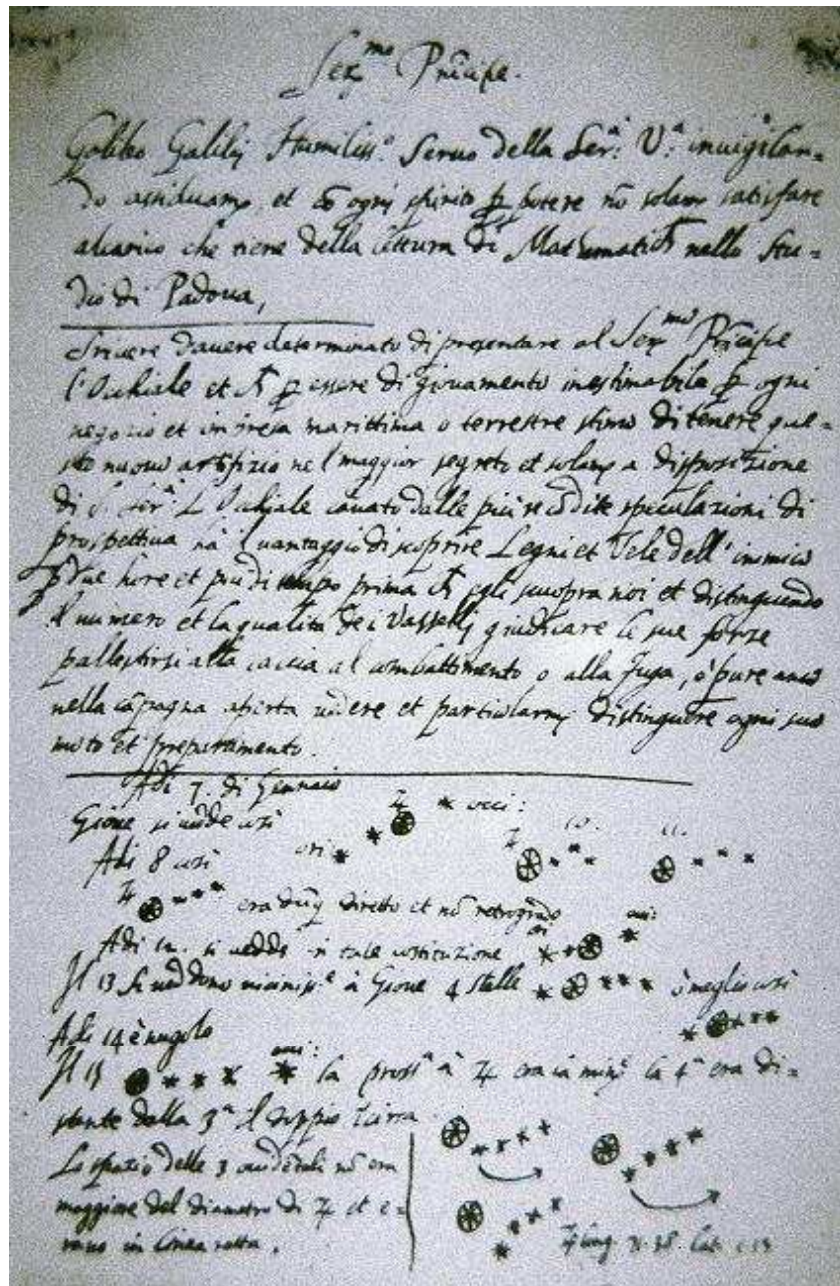 Ser.mo Principe.
Galileo Galilej Humiliss.o Seruo della Ser.a V.a inuigilan-
do assiduam.te, et cō ogni spirito p potere nō solam.te satisfare
alcarico che tiene della lettura di Mathematich nello Stu-
dio di Padoua,
Scriuere dauere determinato di presentare al Ser.mo Pricipe
l'Occhiale et ch p essere di giouamento inestimabile p ogni
negozio et impresa marittima o terrestre stimo di tenere que-
sto nuouo artifizio nel maggior segreto et solam.te a disposizione
di S. Ser.a L'Occhiale cauato dalle più recōdite speculazioni di
prospettiua ha il uantaggio di scoprire Legni et Vele dell'inimico
p due hore et più di tempo prima ch egli scuopra noi et distinguendo
il numero et la qualità de i Vasselli giudicare le sue forze
pallestirsi alla caccia al combattimento o alla fuga, ò pure anco
nella cāpagna aperta uedere et particularm.te distinguere ogni suo
moto et preparamento.
Adi 7. di Gennaio
Gioue si uede cosi ♃ occi:
Adi 8 cosi ori ♃ 10. 11.
♃ era dūq diretto et nō retrogrado
Adi 12. si uedde in tale costituzione ori occi:
Il 13 si ueddono uiciniss.e à Gioue 4 stelle ò meglio cosi
Adi 14 è nugolo
Il 15 occi: la pross.a à ♃ era la min.e la 4.a era di-
stante dalla 3.a il doppio circa
Lo spazio delle 3 occidētali nō era
maggiore del diametro di ♃ et e-
rano in linea retta.
♃ long. 71.38. Lat. 1.13